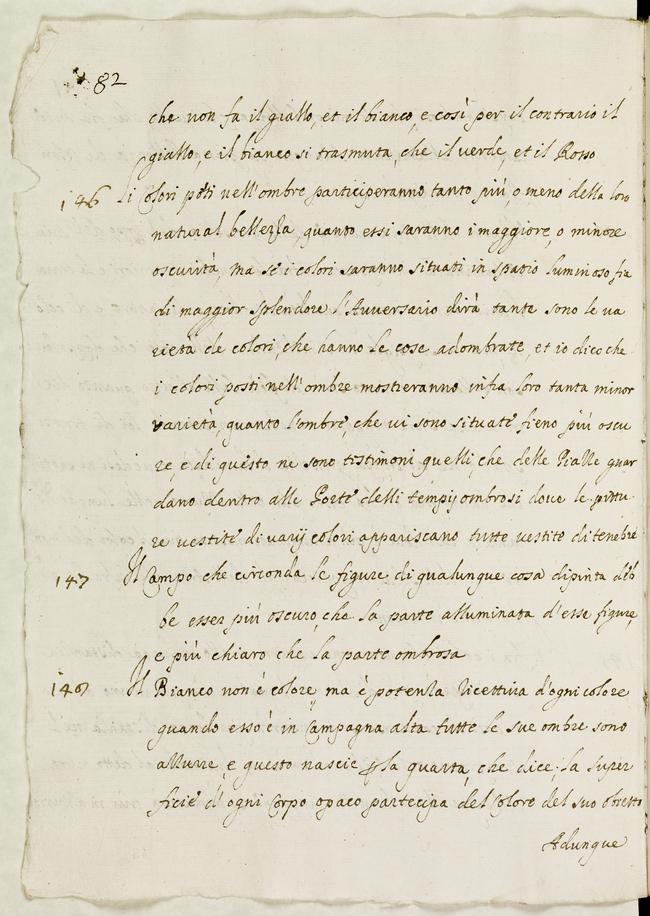 82
che non fa il giallo, et il bianco, e così per il contrario il
giallo, e il bianco si trasmuta, che il verde, et il Rosso
146 Li Colori posti nell'ombre participeranno tanto più, o meno della loro
natural bellezza, quanto essi saranno i maggiore, o minore
oscurità, ma se i colori saranno situati in spatio luminoso fia
di maggior splendore l'Avversario dirà tante sono le va
rietà de colori, che hanno le cose adombrate, et io dico che
i colori posti nell'ombre mostreranno infra loro tanta minor
varietà, quanto l'ombre, che vi sono situate fieno più oscu
re, e di questo ne sono tistimoni quelli, che delle Pialle guar
dano dentro alle Porte delli tempij ombrosi dove le pittu
re vestite di varij colori appariscano tutte vestite di tenebre
147 Il Campo che circonda le figure di qualunque cosa dipinta deb
be esser più oscuro, che la parte alluminata d'esse figure,
e più chiaro che la parte ombrosa
148 Il Bianco non è colore, ma è potenza ricettiva d'ogni colore
quando esso è in Campagna alta tutte le sue ombre sono
allurre, e questo nascie la quarta, che dice, la super
ficie d'ogni Corpo opaco partecipa del Colore del suo obietto
Adunque